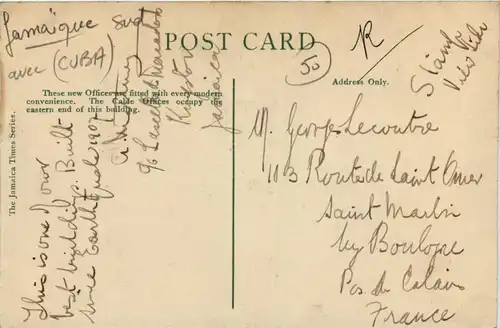 Jamaïque Sud
avec (CUBA)
POST CARD
50
R
Stamp
View Side
These new Offices are fitted with every modern
convenience. The Cable Offices occupy the
eastern end of this building.
Address Only.
The Jamaica Times Series.
This is one of our
best buildings. Built
since Earthquake 1907
c/o Lascelles
Kingston
Jamaica
M. Georges Lecoutre
113 Route de Saint Omer
Saint Martin
by Boulogne
Pas de Calais
France